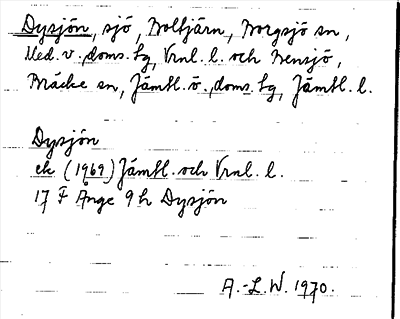 Dysjön, sjö, Boltjärn, Borgsjö sn,
Med. v. doms. lg, Vrnl. l. och Bensjö,
Bräcke sn, Jämtl. ö. doms. lg, Jämtl. l.
Dysjön
ek (1969) Jämtl. och Vrnl. l.
17 F Ånge 9 h Dysjön
A.-L. W. 1970.